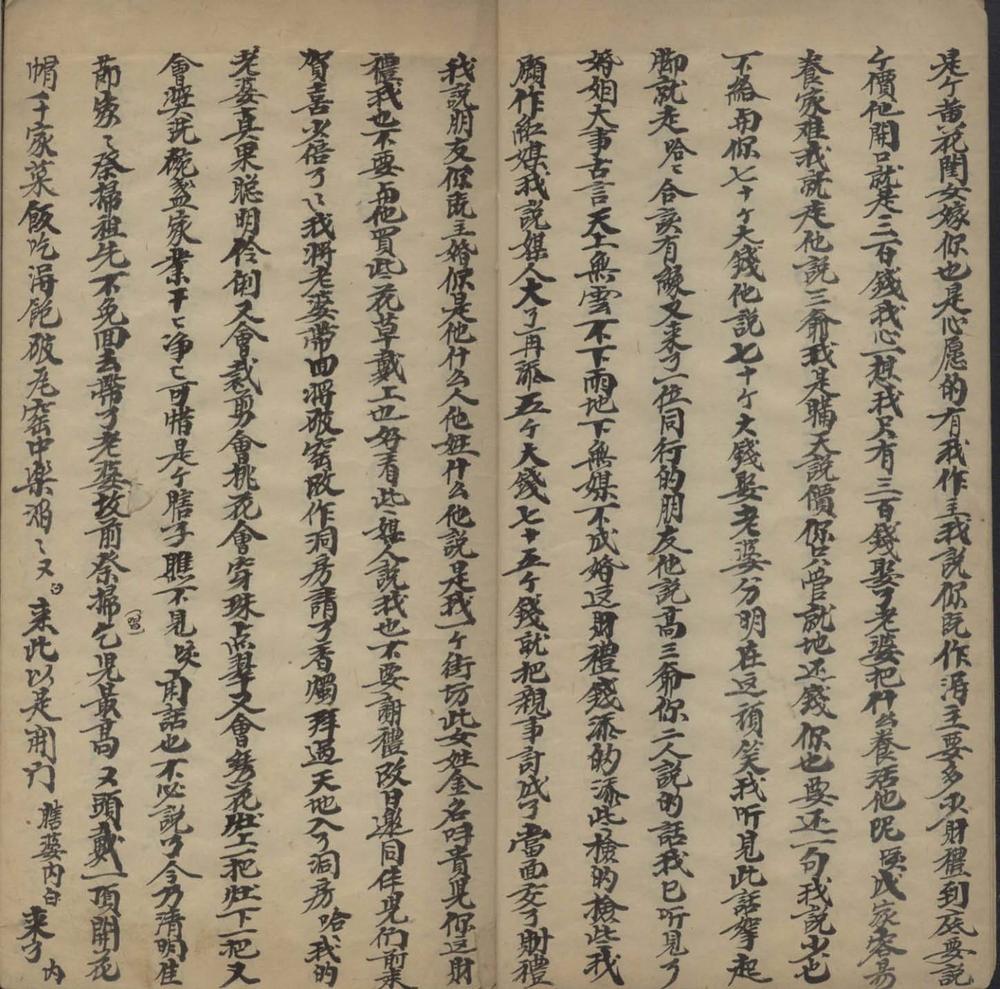 是个黄花閨女嫁你也是心愿的有我作主我說你既作淂主要多少財禮到底要說
个價他開口就是三百錢我心一想我只有三百錢娶了老婆把什么養活他呢唉成家容易
養家难我就走他說三爺我是瞞天說價你只管就地还錢你也要还一句我說少也
不給两你七十个大錢他說七十个大錢娶老婆分明在这頑笑我听見此話拏起
脚就走哈〻合該有緣又来了一位同行的朋友他說高三爺你二人說的話我已听見了
婚姻大事古言天上無雲不下雨地下無媒不成婚这財禮錢添的添些檢的檢些我
願作紅媒我說媒人大了再添五个大錢七十五个錢就把親事討成了當面交了財禮
我說朋友你既主婚你是他什么人他姓什么他說是我一个街坊此女姓金名呌貴児你这財
禮我也不要両他買些花草戴上也好看些媒人說我也不要謝禮改日邀同伴児们前来
賀喜少倍了〻我將老婆帶回將破窑改作洞房請了香燭拜過天地入了洞房哈我的
老婆真果聪明伶俐又會裁剪會桃花會穿珠点翠又會綉花肚上一把肚下一把又
會漿洗碗盏家業干〻净〻可惜是个瞎子瞧不見唉闲話也不必說了今乃清明佳
節家〻祭掃祖先不免回去帶了老婆坟前祭掃(唱)乞児最高又頭戴一頂開花
帽千家菜飯吃淂飽破瓦窑中樂淊〻又白来此以是闭门 瞎婆内白来了内